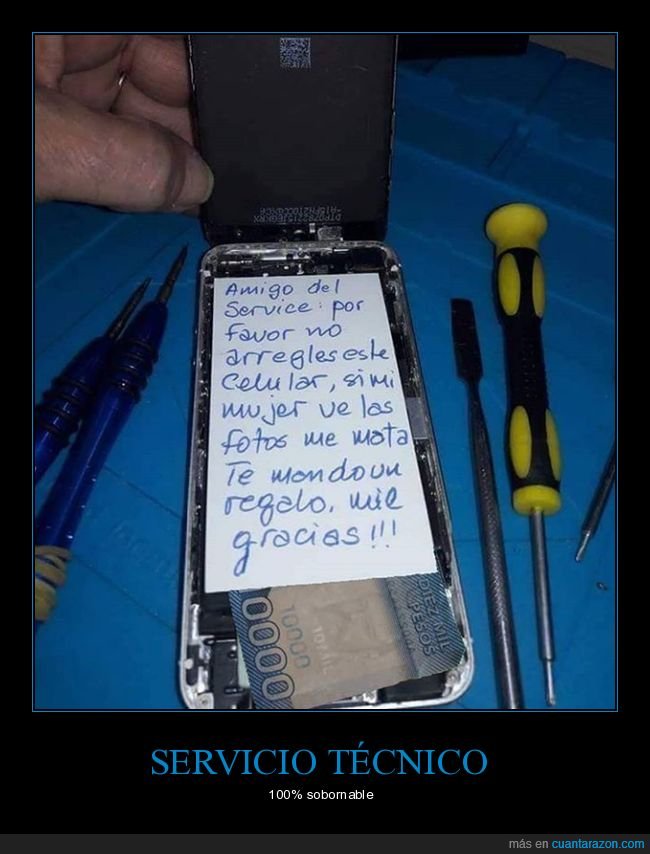 Amigo del
Service: por
favor no
arregles este
Celular, si mi
mujer ve las
fotos me mata
Te mando un
regalo, mil
gracias!!!
10000
10000
DIEZ MIL
PESOS
SERVICIO TÉCNICO
100% sobornable
más en cuantarazon.com